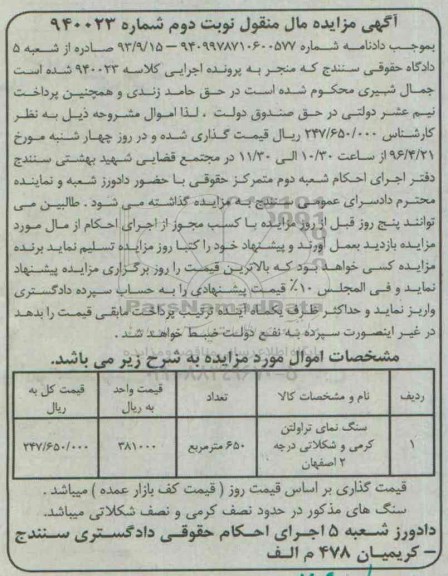 آگهی مزایده مال منقول نوبت دوم شماره ۹۴۰۰۲۳
بموجب دادنامه شماره ۹۴۰۹۹۷۸۷۱۰۶۰۰۵۷۷ – ۹۳/۹/۱۵ صادره از شعبه ۵
دادگاه حقوقی سنندج که منجر به پرونده اجرایی کلاسه ۹۴۰۰۲۳ شده است
جمال شیری محکوم شده است در حق حامد زندی و همچنین پرداخت
نیم عشر دولتی در حق صندوق دولت ، لذا اموال مشروحه ذیل به نظر
کارشناس ۲۴۷/۶۵۰/۰۰۰ ریال قیمت گذاری شده و در روز چهار شنبه مورخ
۹۶/۴/۲۱ از ساعت ۱۰/۳۰ الی ۱۱/۳۰ در مجتمع قضایی شهید بهشتی سنندج
دفتر اجرای احکام شعبه دوم متمرکز حقوقی با حضور دادورز شعبه و نماینده
محترم دادسرای عمومی سنندج به مزایده گذاشته می شود . طالبین می
توانند پنج روز قبل از روز مزایده با کسب مجوز از اجرای احکام از مال مورد
مزایده بازدید بعمل آورند و پیشنهاد خود را کتبا روز مزایده تسلیم نماید برنده
مزایده کسی خواهد بود که بالاترین قیمت را روز برگزاری مزایده پیشنهاد
نماید و فی المجلس ۱۰٪ قیمت پیشنهادی را به حساب سپرده دادگستری
واریز نماید و حداکثر ظرف یکماه آینده ترتیب پرداخت مابقی قیمت را بدهد
در غیر اینصورت سپرده به نفع دولت ضبط خواهد شد .
مشخصات اموال مورد مزایده به شرح زیر می باشد.
ردیف نام و مشخصات کالا تعداد قیمت واحد به ریال قیمت کل به ریال
۱ سنگ نمای تراولتن کرمی و شکلاتی درجه ۲ اصفهان ۶۵۰ مترمربع ۳۸۱۰۰۰ ۲۴۷/۶۵۰/۰۰۰
قیمت گذاری بر اساس قیمت روز ( قیمت کف بازار عمده ) میباشد .
سنگ های مذکور در حدود نصف کرمی و نصف شکلاتی میباشد.
دادورز شعبه ۵ اجرای احکام حقوقی دادگستری سنندج
– کریمیان ۴۷۸ م الف